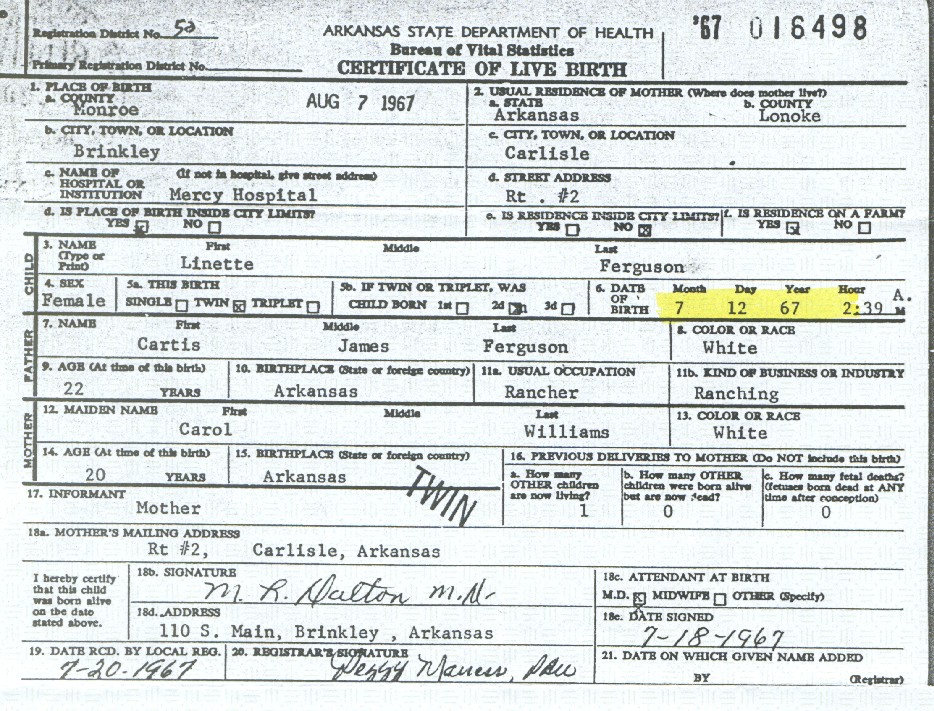 Registration District No. 52
ARKANSAS STATE DEPARTMENT OF HEALTH
'67 016498
Bureau of Vital Statistics
Primary Registration District No.
CERTIFICATE OF LIVE BIRTH
1. PLACE OF BIRTH
a. COUNTY
Monroe
AUG 7 1967
2. USUAL RESIDENCE OF MOTHER (Where does mother live?)
a. STATE
Arkansas
b. COUNTY
Lonoke
b. CITY, TOWN, OR LOCATION
Brinkley
c. CITY, TOWN, OR LOCATION
Carlisle
c. NAME OF HOSPITAL OR INSTITUTION (If not in hospital, give street address)
Mercy Hospital
d. STREET ADDRESS
Rt . #2
d. IS PLACE OF BIRTH INSIDE CITY LIMITS?
YES ☒ NO ☐
e. IS RESIDENCE INSIDE CITY LIMITS?
YES ☐ NO ☒
f. IS RESIDENCE ON A FARM?
YES ☒ NO ☐
CHILD
3. NAME (Type or Print)
First Middle Last
Linette Ferguson
4. SEX
Female
5a. THIS BIRTH
SINGLE ☐ TWIN ☒ TRIPLET ☐
5b. IF TWIN OR TRIPLET, WAS
CHILD BORN 1st ☐ 2d ☒ 3d ☐
6. DATE OF BIRTH
Month Day Year Hour
7 12 67 2:39 A. M
FATHER
7. NAME First Middle Last
Cartis James Ferguson
8. COLOR OR RACE
White
9. AGE (At time of this birth)
22 YEARS
10. BIRTHPLACE (State or foreign country)
Arkansas
11a. USUAL OCCUPATION
Rancher
11b. KIND OF BUSINESS OR INDUSTRY
Ranching
MOTHER
12. MAIDEN NAME First Middle Last
Carol Williams
13. COLOR OR RACE
White
14. AGE (At time of this birth)
20 YEARS
15. BIRTHPLACE (State or foreign country)
Arkansas
TWIN
16. PREVIOUS DELIVERIES TO MOTHER (Do NOT include this birth)
a. How many OTHER children are now living?
1
b. How many OTHER children were born alive but are now dead?
0
c. How many fetal deaths? (fetuses born dead at ANY time after conception)
0
17. INFORMANT
Mother
18a. MOTHER'S MAILING ADDRESS
Rt #2, Carlisle, Arkansas
I hereby certify that this child was born alive on the date stated above.
18b. SIGNATURE
M. R. Dalton M.D.
18c. ATTENDANT AT BIRTH
M.D. ☒ MIDWIFE ☐ OTHER (Specify)
18d. ADDRESS
110 S. Main, Brinkley , Arkansas
18e. DATE SIGNED
7-18-1967
19. DATE RCD. BY LOCAL REG.
7-20-1967
20. REGISTRAR'S SIGNATURE
Peggy
21. DATE ON WHICH GIVEN NAME ADDED
BY (Registrar)